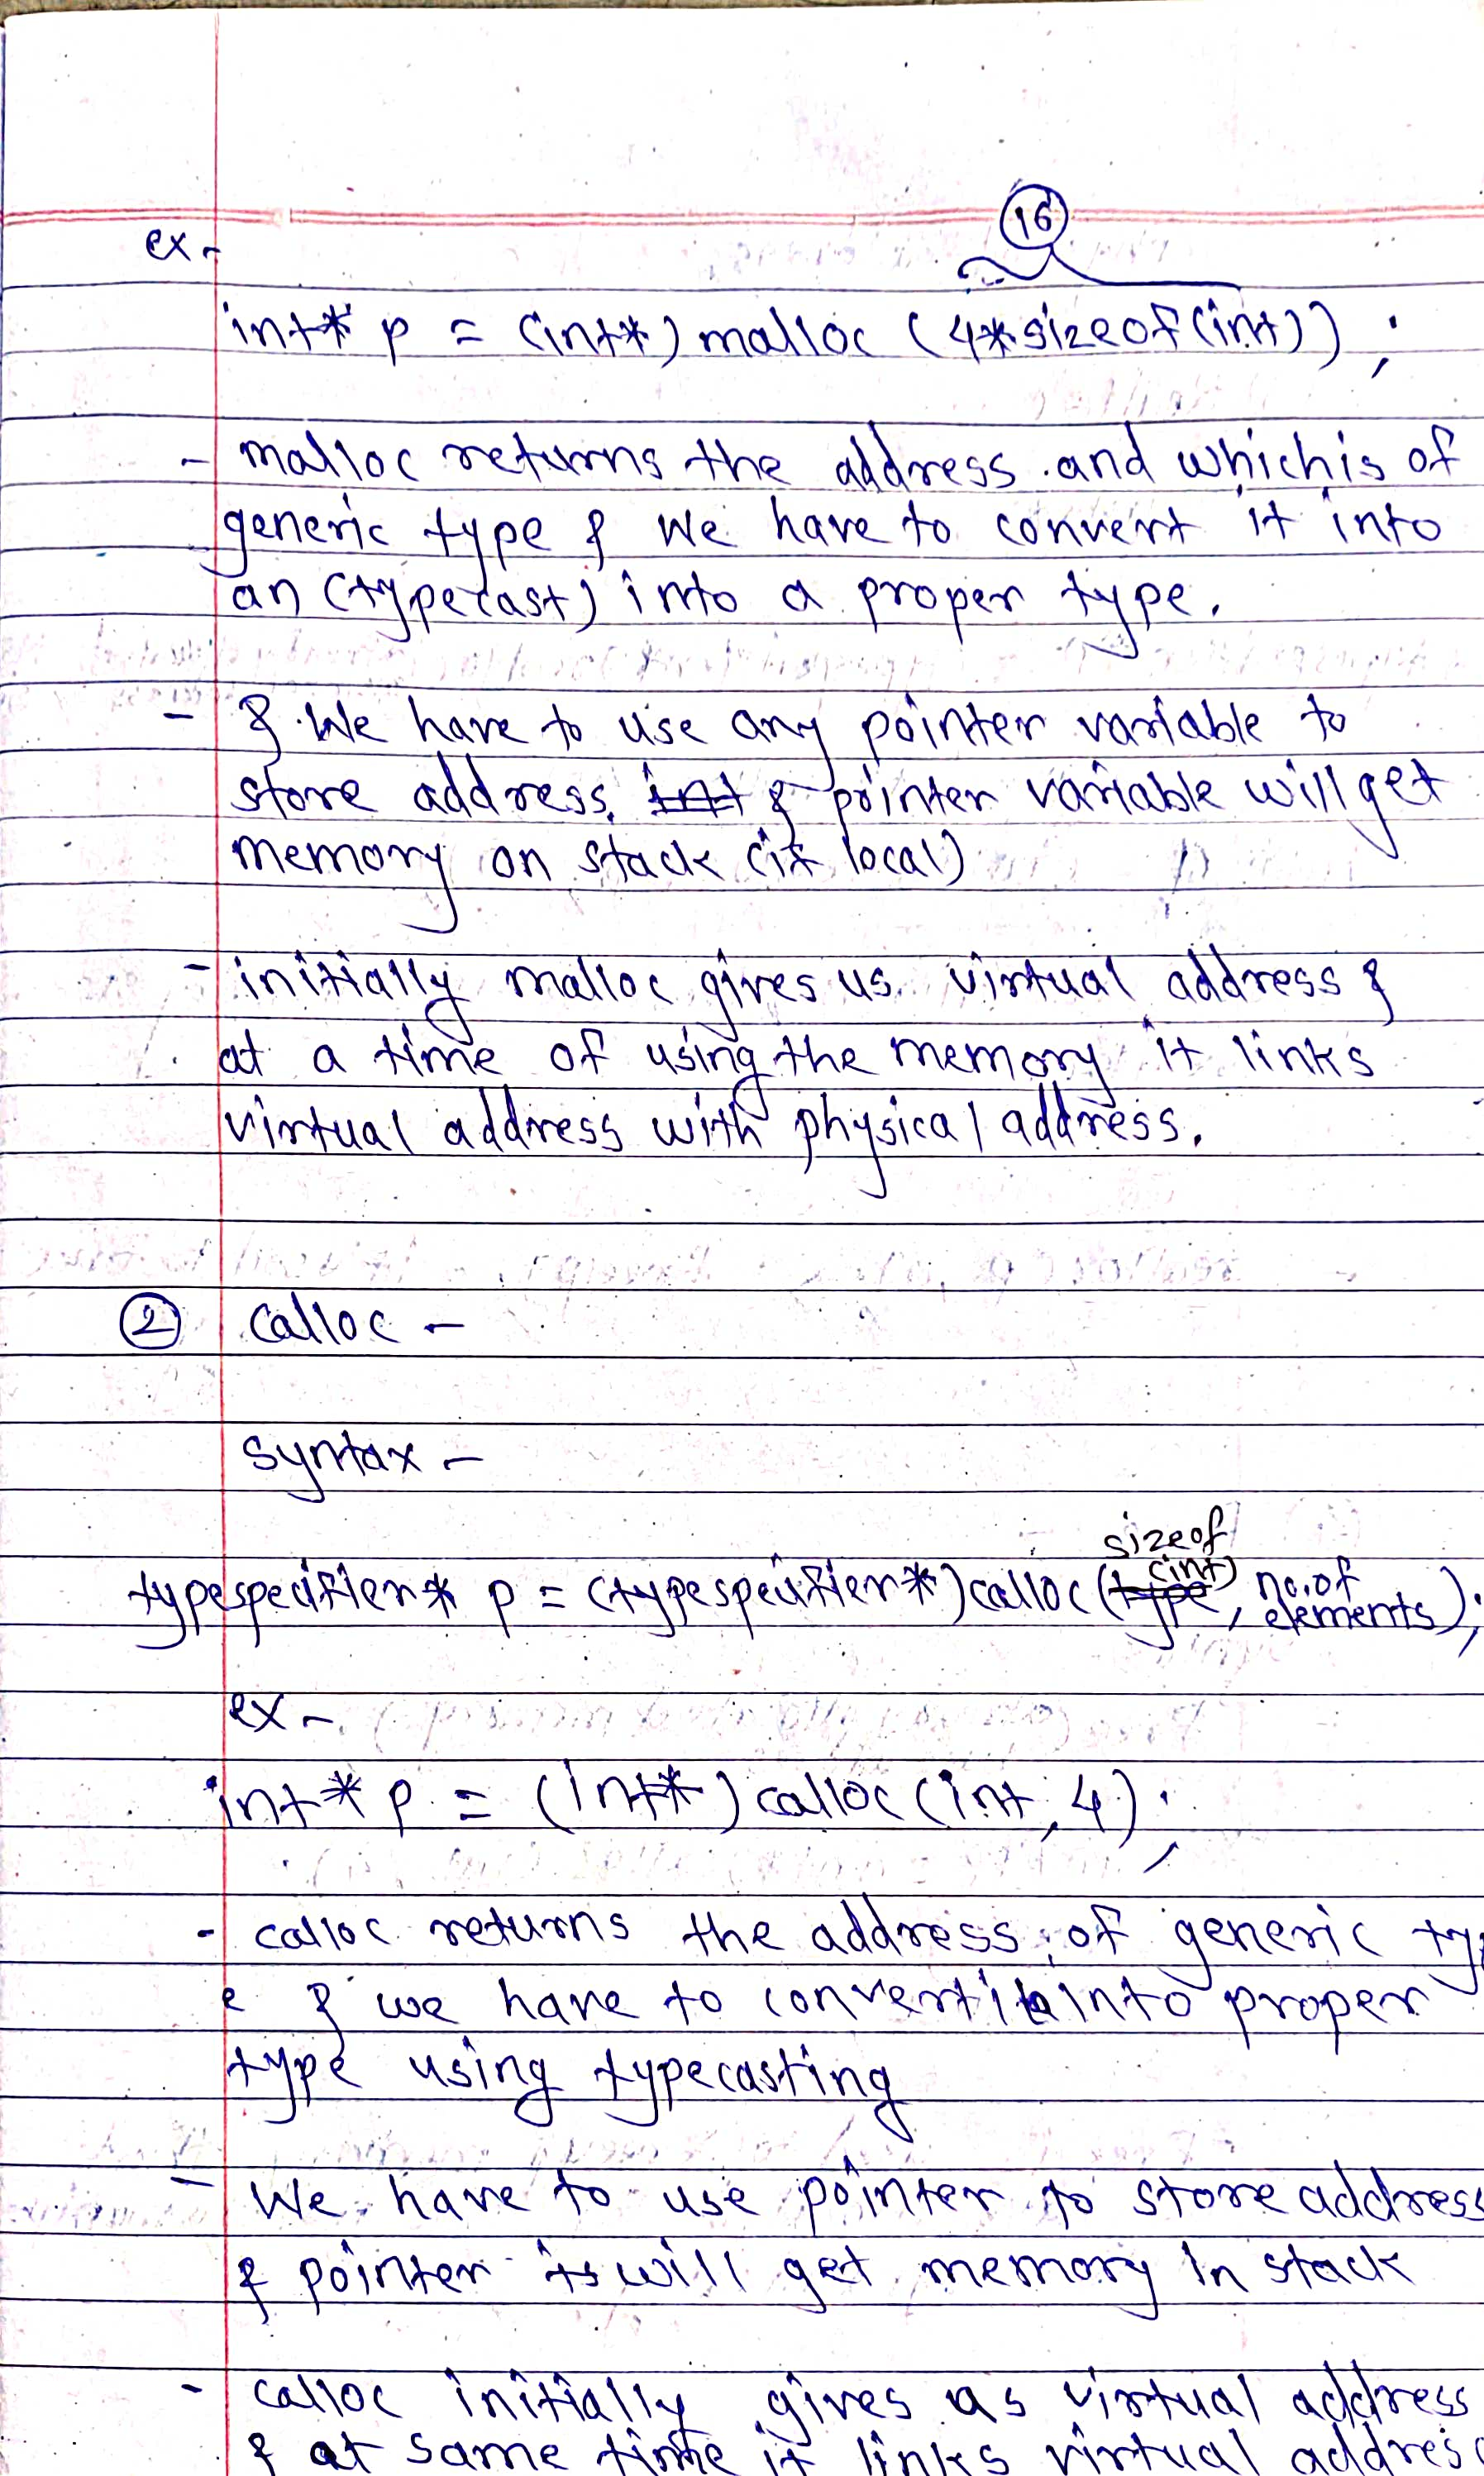 16
ex-
int* p = (int*) malloc (4*sizeof(int));
- malloc returns the address and which is of
generic type & we have to convert it into
an (typecast) into a proper type.
- & We have to use any pointer variable to
store address. int & pointer variable will get
memory on stack (if local)
- initially malloc gives us virtual address &
at a time of using the memory it links
virtual address with physical address.
② calloc -
syntax -
sizeof
(int)
typespecifier* p = (typespecifier*) calloc (type, no. of elements);
ex -
int* p = (int*) calloc (int, 4);
- calloc returns the address of generic typ
e & we have to convert it into proper
type using typecasting
- We have to use pointer to store address
& pointer is will get memory in stack
- calloc initially gives as virtual address
& at same time it links virtual address